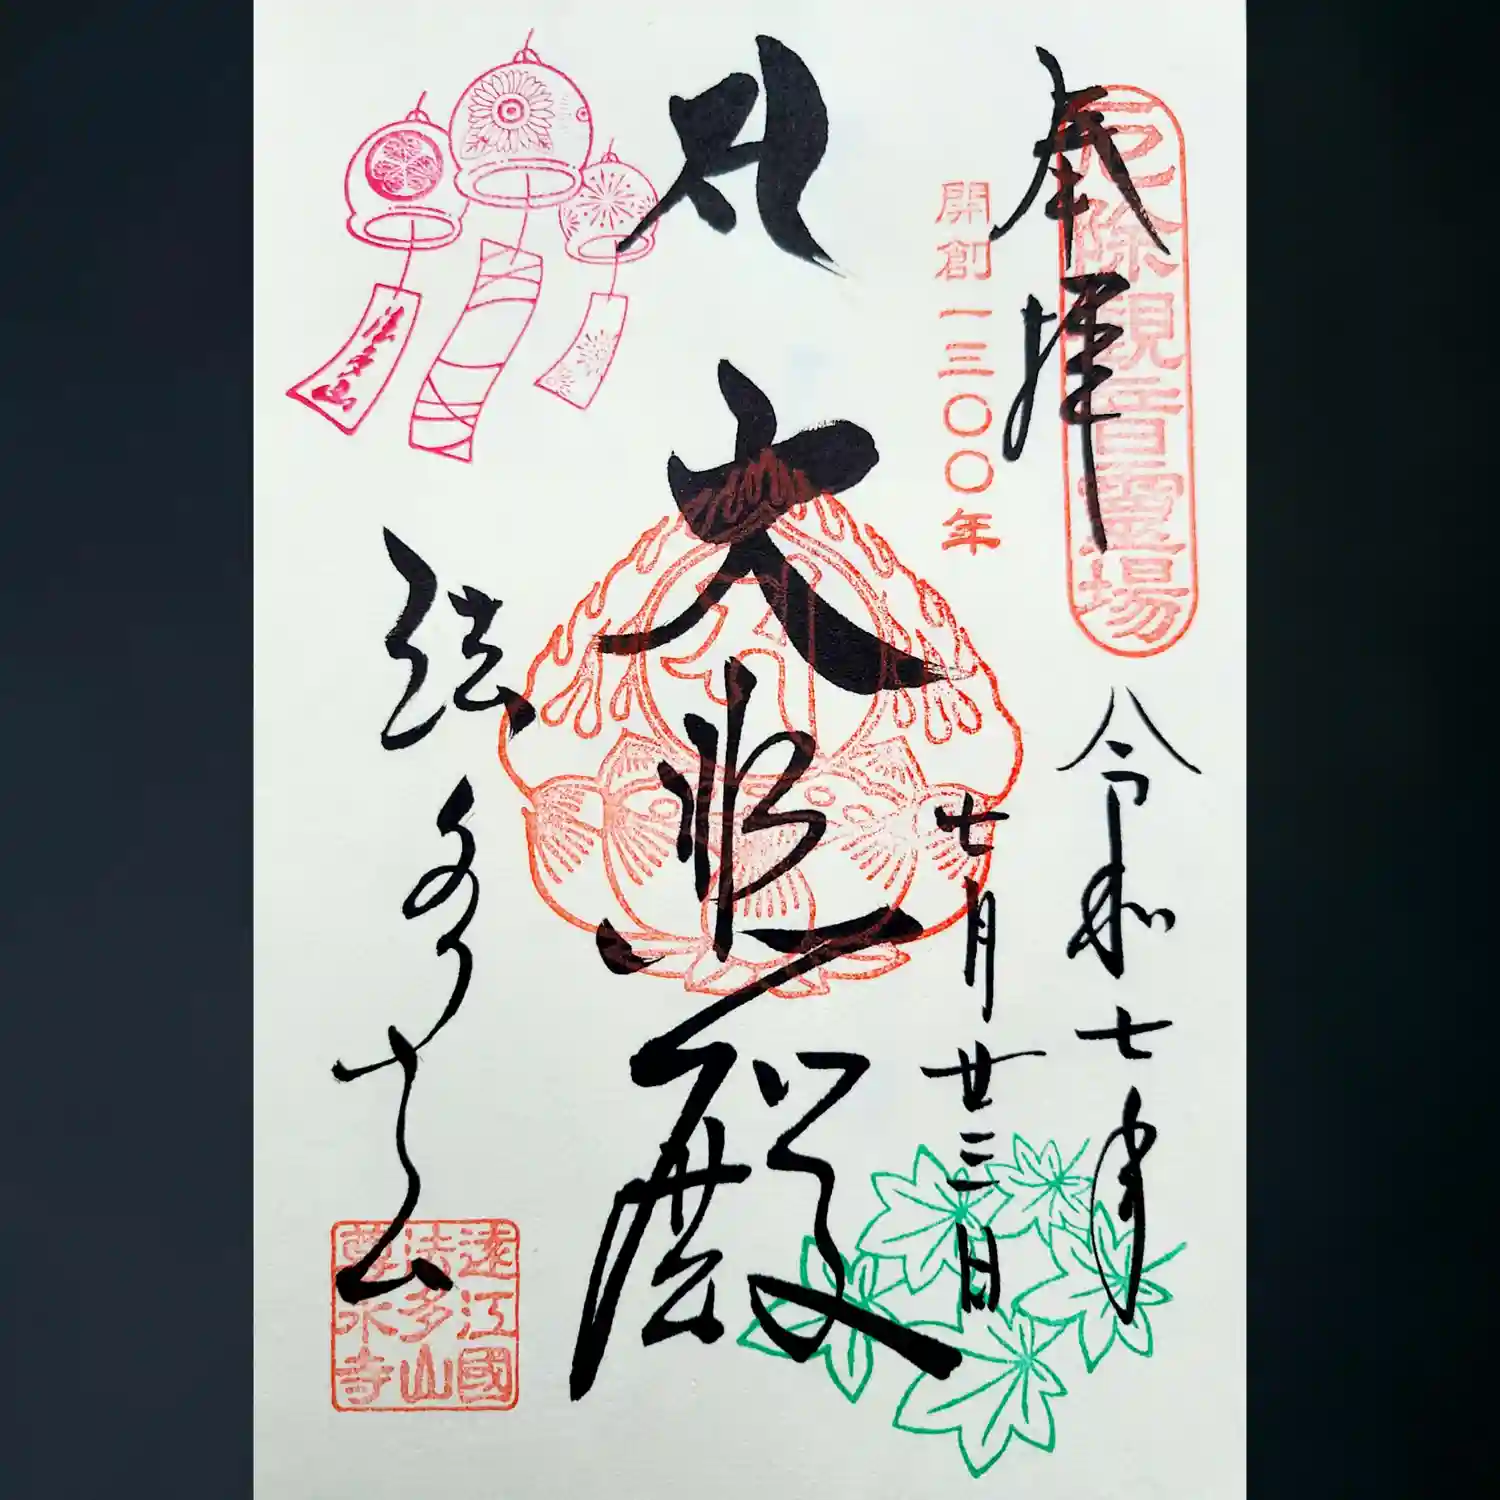 奉拝
厄除観音霊場
開創一三〇〇年
令和七年
七月廿二日
大悲殿
法多山
法多山
遠江國
法多山
尊永寺